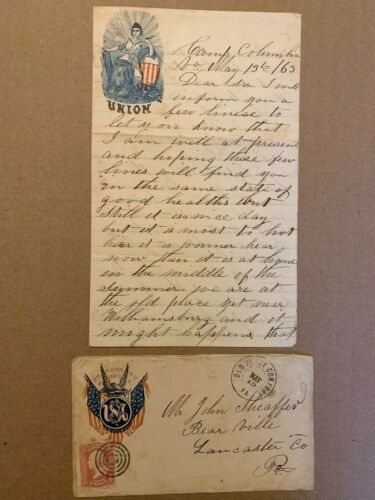 Camp Columbia
Va May 13th /63
Dear Sir I will
inform you a
UNION
few linese to
let your know that
I am well at present
and hoping these few
lines will find you
in the same state of
good healths but
Still it is nice day
but it is most to hot
hear it is
now then it is at home
in the middle of the
Summer we are at
the old place yet near
Williamsburg and it
might happens that
OLD POINT COMFORT
MAY
VA
USA
Mr. John Sheaffer
Bear ville
Lancaster Co
Pa